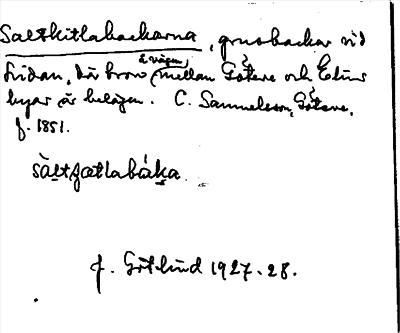 Saltkitlabackarna, grusbackar vid
Lidan, där bron å vägen mellan Götene och Etins
byar är belägen. C. Samuelsson, Götene,
f. 1851.
f. Götlind 1927-28.